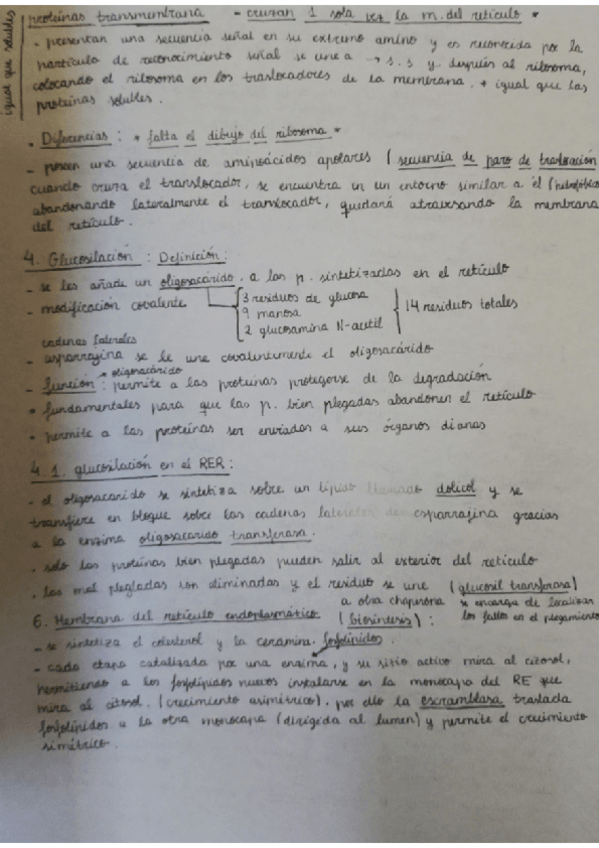 igual que solubles
proteinas transmembrana - cruzan 1 sola vez la m. del reticulo *
- presentan una secuencia señal en su extremo amino y es reconocida por la
partícula de reconocimiento señal se une a → s.s y después al ribosoma,
colocando el ribosoma en los traslocadores de la membrana. * igual que las
proteinas solubles.
• Diferencias : * falta el dibujo del ribosoma *
- poseen una secuencia de aminoácidos apolares ( secuencia de paro de traslocación
cuando cruza el translocador, se encuentra en un entorno similar a él (hidrofóbico
abandonando lateralmente el translocador, quedará atravesando la membrana
del retículo.
4. Glucosilación : Definición :
- se les añade un oligosacárido. a las p. sintetizadas en el retículo
- modificación covalente
3 residuos de glucosa
9 manosa
2 glucosamina N-acetil
14 residuos totales
cadenas laterales
- asparrajina se le une covalentemente el oligosacárido
→ oligosacárido
- función : permite a las proteinas protegerse de la degradación
• fundamentales para que las p. bien plegadas abandonen el retículo
• permite a las proteínas ser enviadas a sus órganos dianas
4. 1. glucosilación en el RER :
• el oligosacarido se sintetiza sobre un lípido llamado dolicol y se
transfiere en bloque sobre las cadenas laterales de esparrajina gracias
a la enzima oligosacarido transferasa.
• solo las proteínas bien plegadas pueden salir al exterior del retículo
• las mal plegladas son eliminadas y el residuo se une (glucosil transferasa)
a otra chaperona se encarga de localizar
los fallos en el plegamiento
6. Membrana del retículo endoplasmático (biosíntesis) :
- se sintetiza el colesterol y la ceramina. fosfolípidos.
- cada etapa catalizada por una enzima, y su sitio activo mira al citosol,
permitiendo a los fosfolípidos nuevos instalarse en la monocapa del RE que
mira al citosol. (crecimiento asimétrico). por ello la escramblasa traslada
fosfolípidos a la otra monocapa (dirigida al lumen) y permite el crecimiento
simétrico.